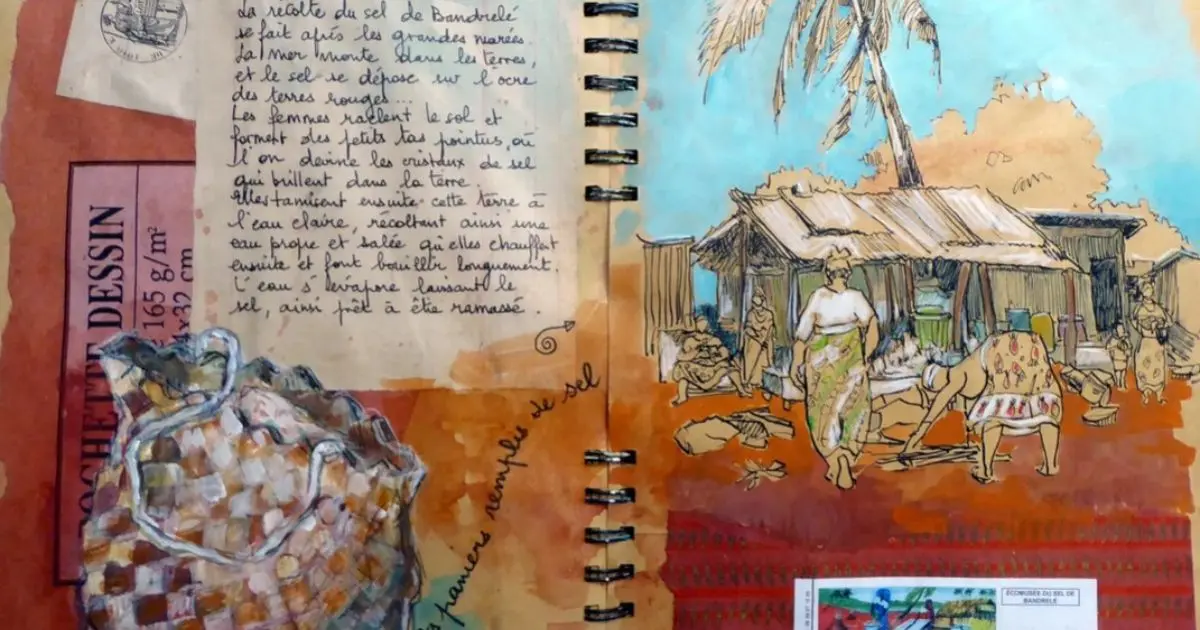 La récolte du sel de Bandrelé
se fait après les grandes marées.
La mer monte dans les terres,
et le sel se dépose sur l'ocre
des terres rouges...
Les femmes raclent le sol et
forment des petits tas pointus, où
l'on devine les cristaux de sel
qui brillent dans la terre.
Elles tamisent ensuite cette terre à
l'eau claire, récoltant ainsi une
eau propre et salée qu'elles chauffent
ensuite et font bouillir longuement.
L'eau s'évapore laissant le
sel, ainsi prêt à être ramassé.
POCHETTE DESSIN
165 g/m²
4x32 cm
paniers remplis de sel
ÉCOMUSÉE DU SEL DE
BANDRELE